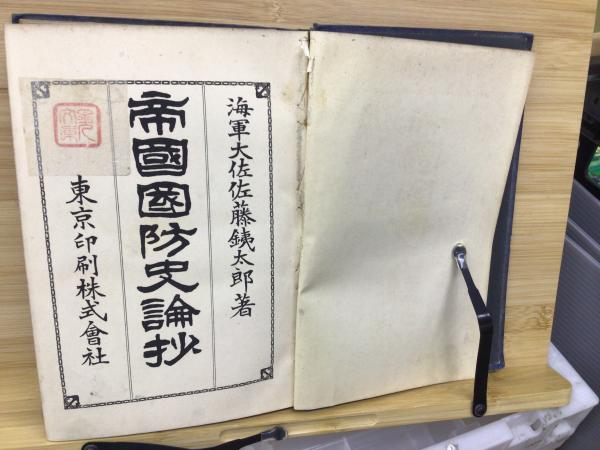 海軍大佐佐藤鐵太郎著
帝國國防史論抄
東京印刷株式會社